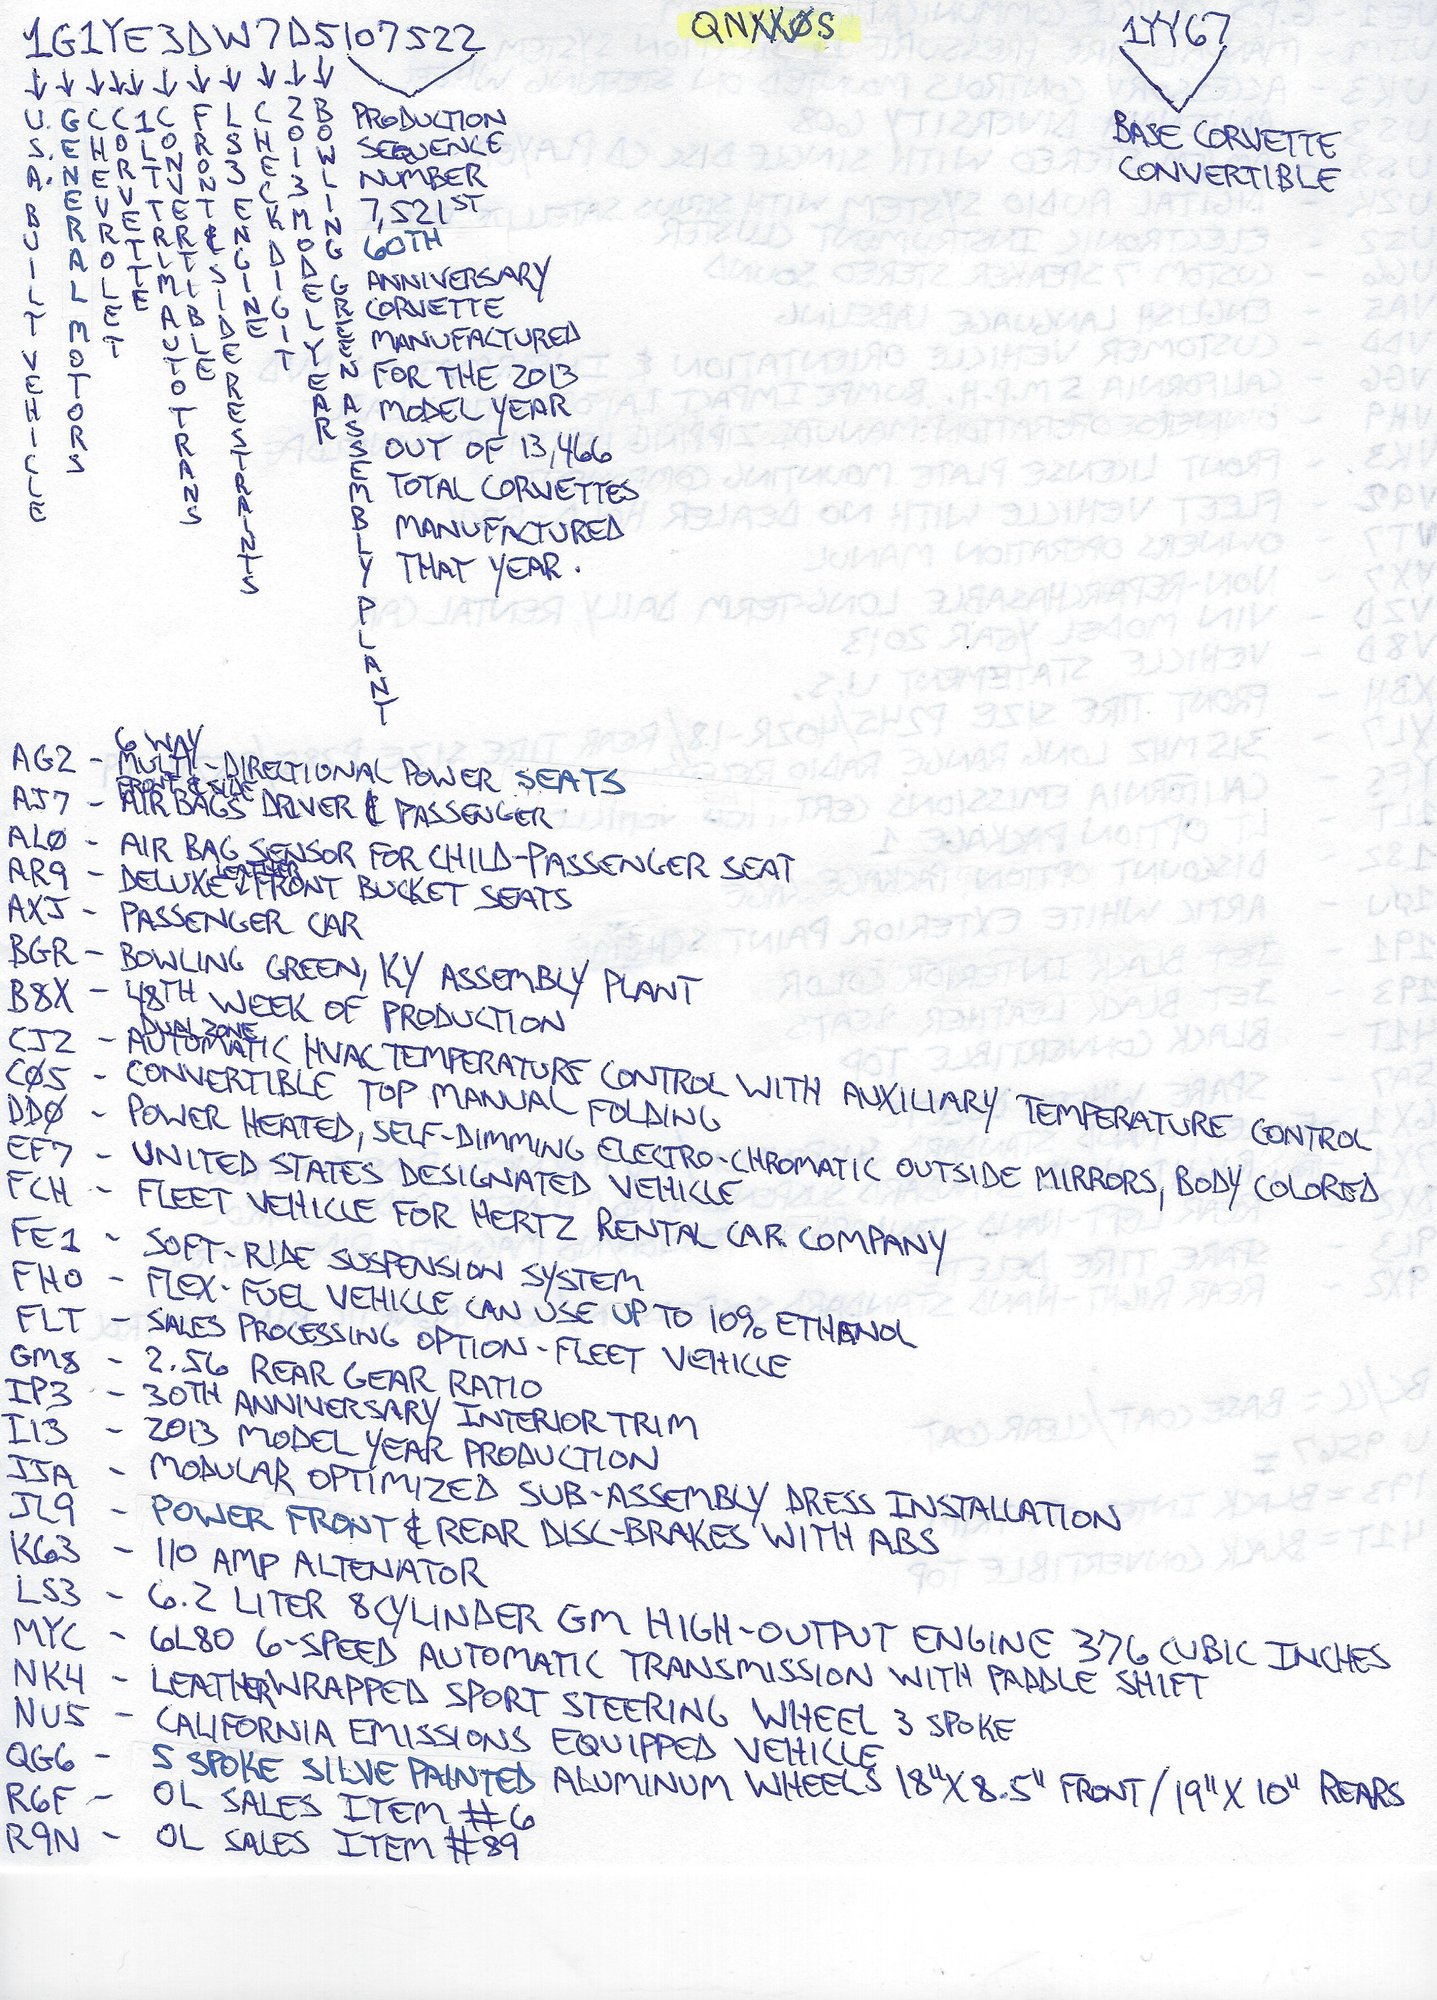 1G1YE3DW7D5107522
QNXXØS
1YY67
U.S.A. BUILT VEHICLE
GENERAL MOTORS
CHEVROLET
CORVETTE
1LT TRIM AUTO TRANS
CONVERTIBLE
FRONT & SIDE RESTRAINTS
LS3 ENGINE
CHECK DIGIT
2013 MODEL YEAR
BOWLING GREEN ASSEMBLY PLANT
PRODUCTION
SEQUENCE
NUMBER
7,521ST
60TH
ANNIVERSARY
CORVETTE
MANUFACTURED
FOR THE 2013
MODEL YEAR
OUT OF 13,466
TOTAL CORVETTES
MANUFACTURED
THAT YEAR.
BASE CORVETTE
CONVERTIBLE
AG2 - 6 WAY MULTI-DIRECTIONAL POWER SEATS
AJ7 - FRONT & SIDE AIR BAGS DRIVER & PASSENGER
ALØ - AIR BAG SENSOR FOR CHILD-PASSENGER SEAT
AR9 - DELUXE LEATHER FRONT BUCKET SEATS
AXJ - PASSENGER CAR
BGR - BOWLING GREEN, KY ASSEMBLY PLANT
B8X - 48TH WEEK OF PRODUCTION
CJ2 - DUAL ZONE AUTOMATIC HVAC TEMPERATURE CONTROL WITH AUXILIARY TEMPERATURE CONTROL
CØ5 - CONVERTIBLE TOP MANUAL FOLDING
DDØ - POWER HEATED, SELF-DIMMING ELECTRO-CHROMATIC OUTSIDE MIRRORS, BODY COLORED
EF7 - UNITED STATES DESIGNATED VEHICLE
FCH - FLEET VEHICLE FOR HERTZ RENTAL CAR COMPANY
FE1 - SOFT-RIDE SUSPENSION SYSTEM
FHO - FLEX-FUEL VEHICLE CAN USE UP TO 10% ETHANOL
FLT - SALES PROCESSING OPTION-FLEET VEHICLE
GM8 - 2.56 REAR GEAR RATIO
IP3 - 30TH ANNIVERSARY INTERIOR TRIM
I13 - 2013 MODEL YEAR PRODUCTION
IJA - MODULAR OPTIMIZED SUB-ASSEMBLY DRESS INSTALLATION
JL9 - POWER FRONT & REAR DISC-BRAKES WITH ABS
KG3 - 110 AMP ALTENATOR
LS3 - 6.2 LITER 8 CYLINDER GM HIGH-OUTPUT ENGINE 376 CUBIC INCHES
MYC - 6L80 6-SPEED AUTOMATIC TRANSMISSION WITH PADDLE SHIFT
NK4 - LEATHER WRAPPED SPORT STEERING WHEEL 3 SPOKE
NU5 - CALIFORNIA EMISSIONS EQUIPPED VEHICLE
QG6 - 5 SPOKE SILVE PAINTED ALUMINUM WHEELS 18"X8.5" FRONT/19"X10" REARS
R6F - OL SALES ITEM #6
R9N - OL SALES ITEM #89